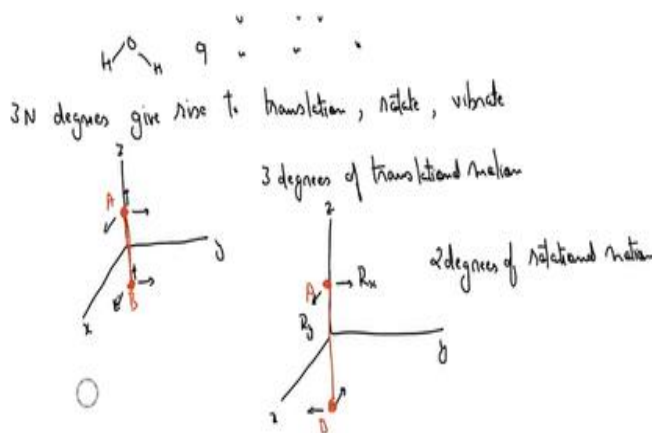 H O H 9
3N degrees give rise to translation, rotate, vibrate
3 degrees of translational motion
z
A
y
B
x
z
A Rx
2 degrees of rotational motion
Ry
y
x
B